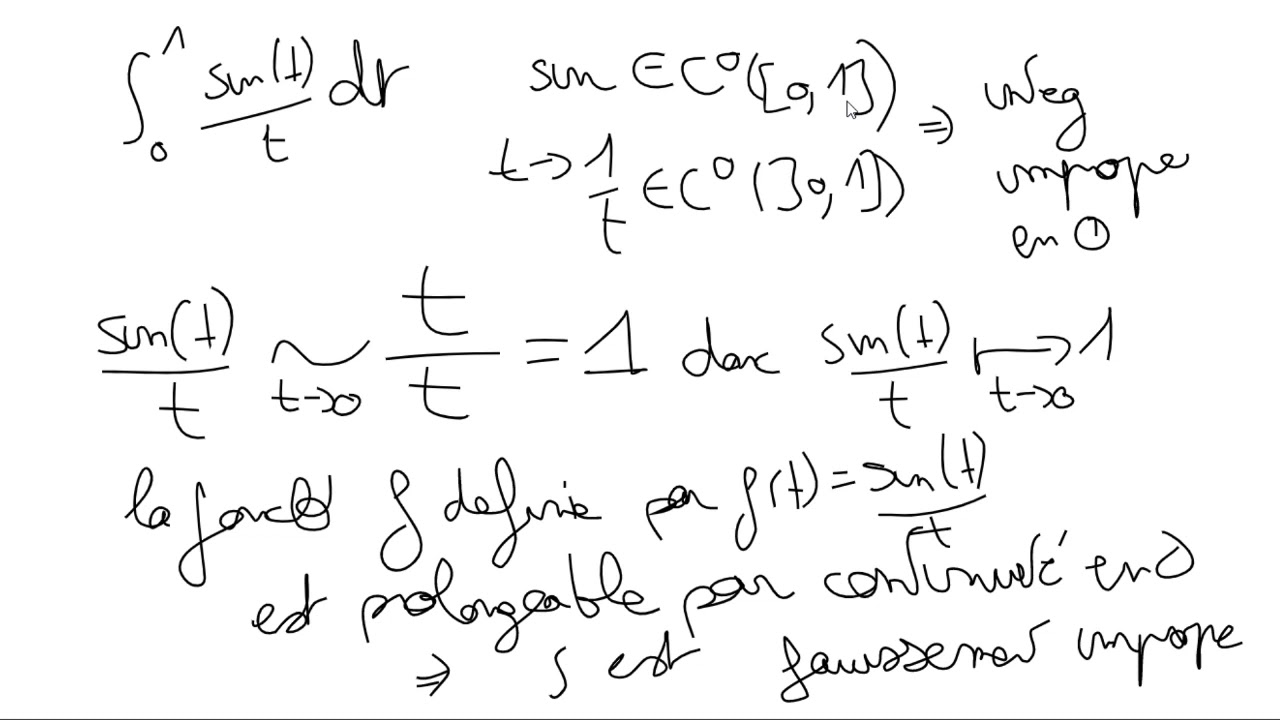 ∫₀¹ sin(t)/t dt sin ∈ C⁰([0,1]) ⇒ intég
t → 1/t ∈ C⁰(]0,1]) impropre
en 0
sin(t)/t ∼ t→0 t/t = 1 donc sin(t)/t ↦ t→0 1
la fonct° f définie par f(t) = sin(t)/t
est prolongeable par continuité en 0
⇒ ∫ est faussement impropre